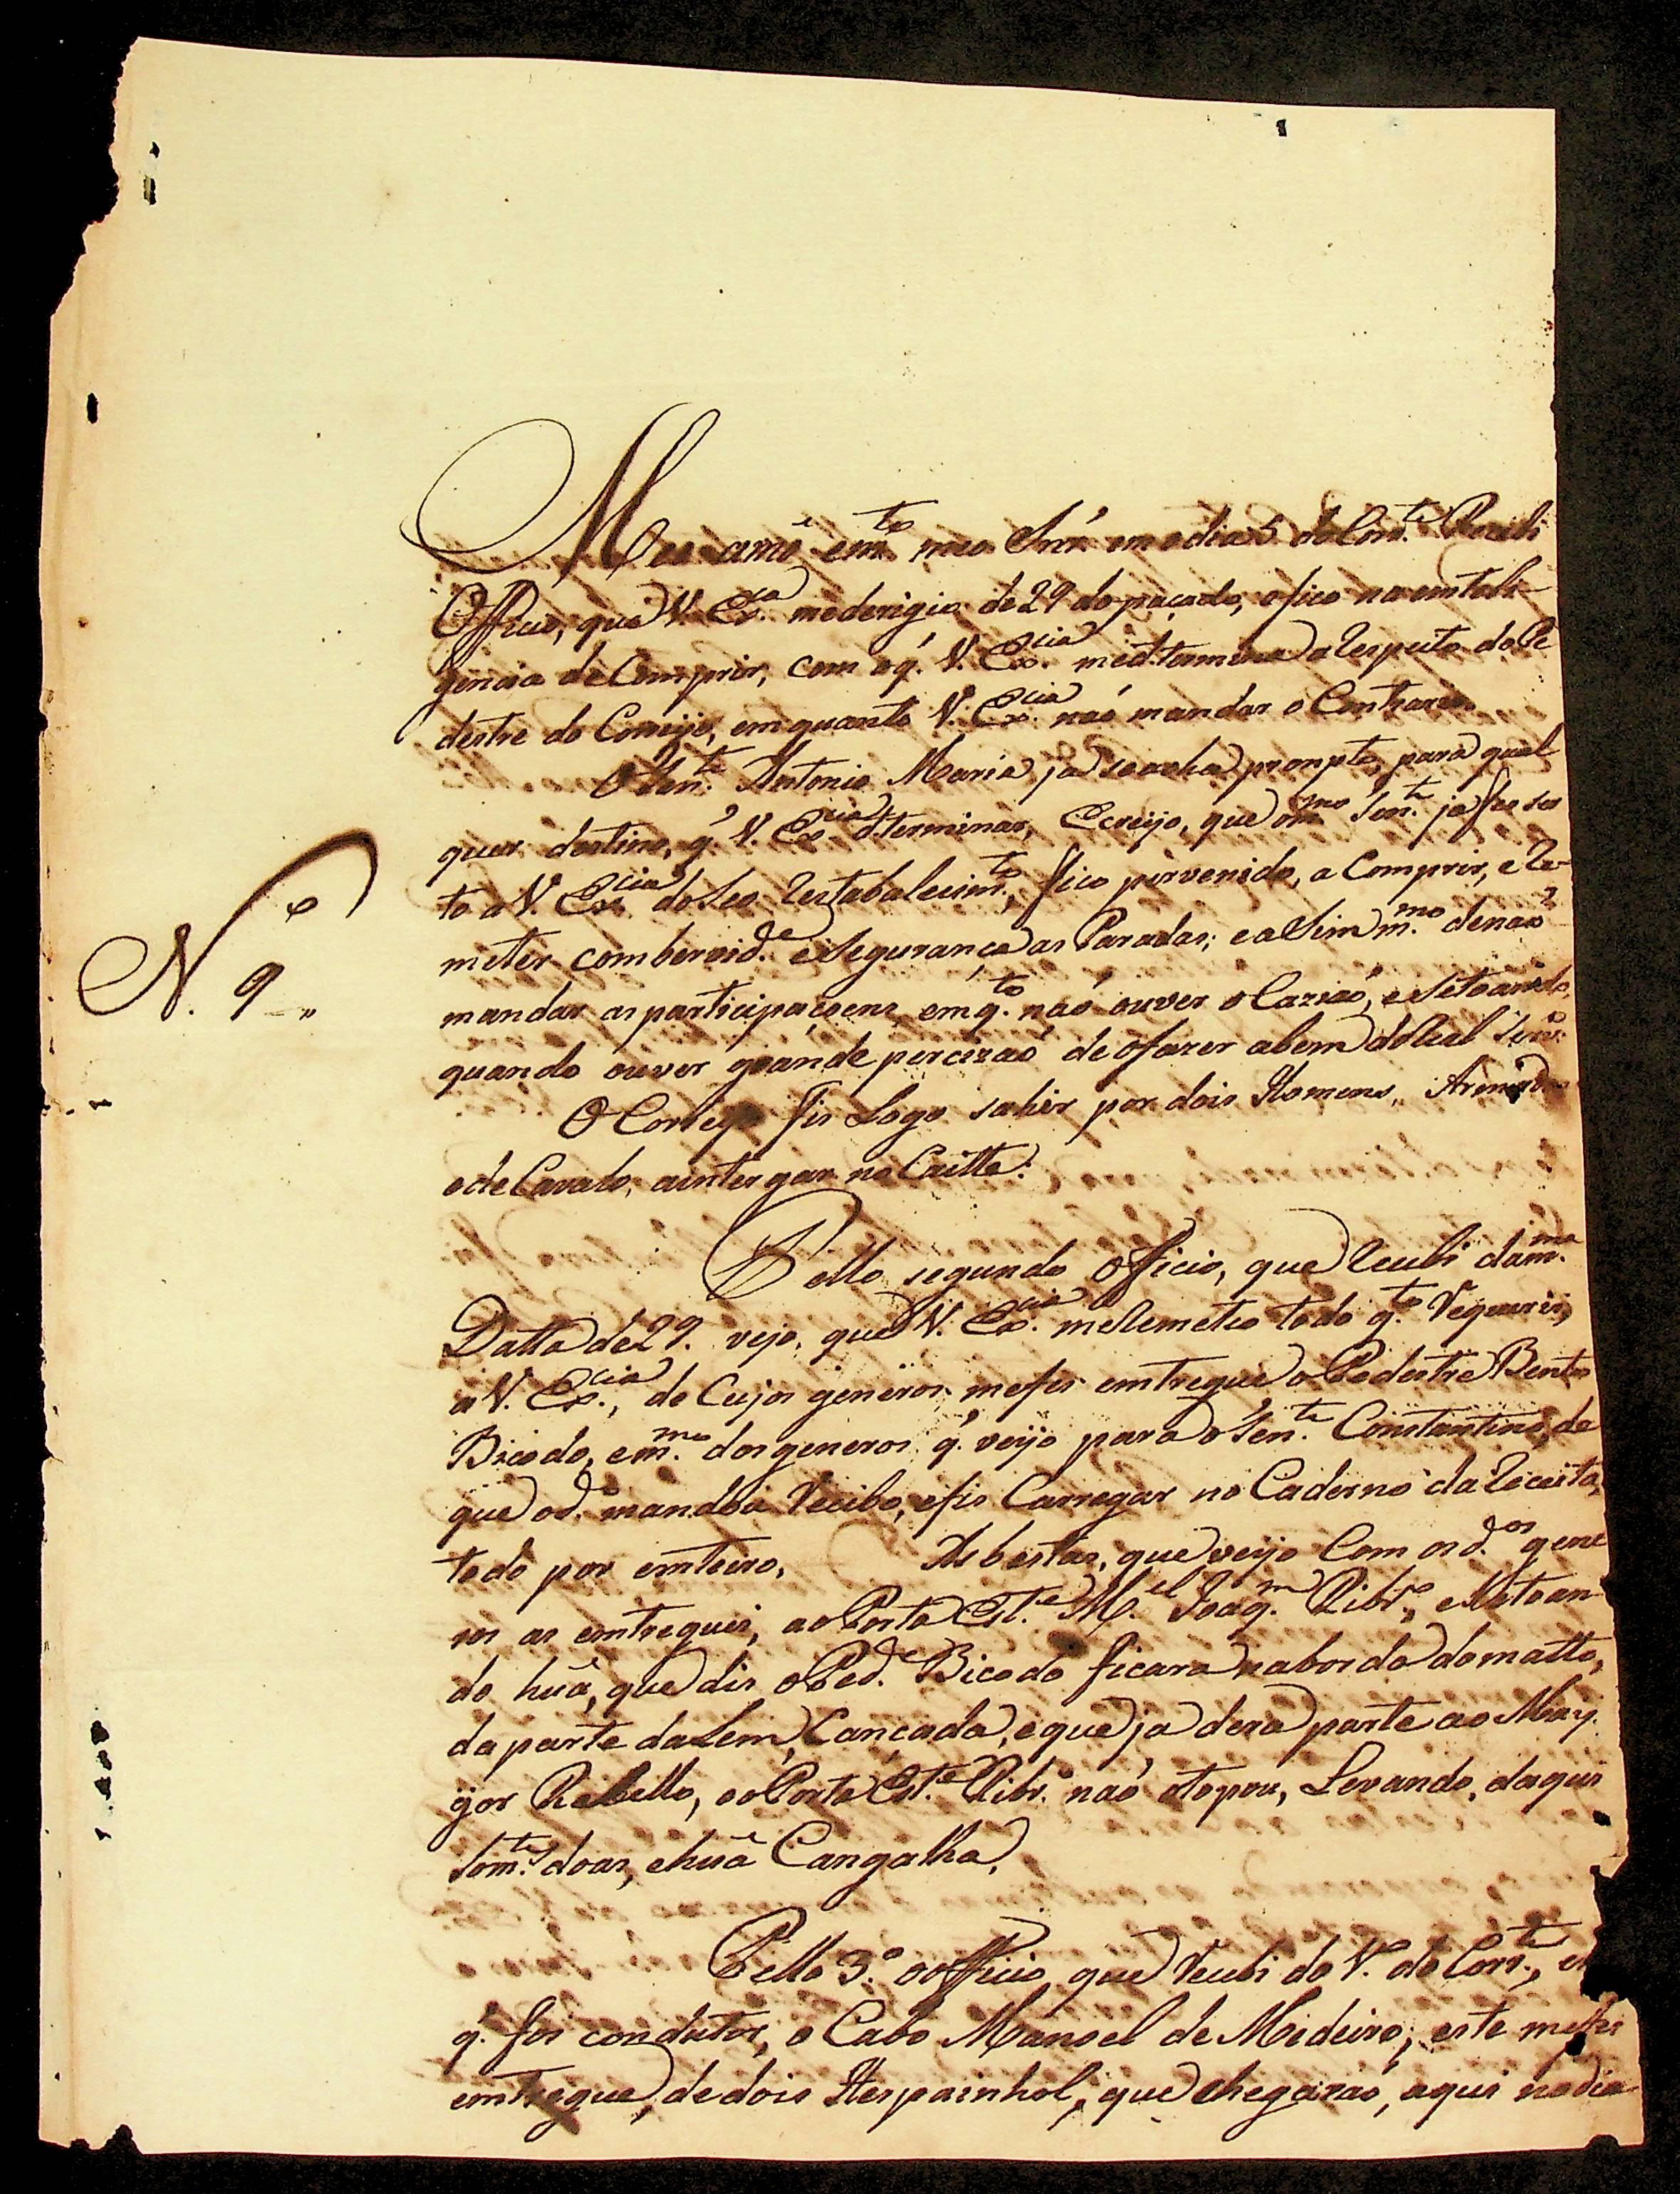 Meo amo em.to meo Snr' em o dia 5 do Corr.te Recibi
Officio, que V. Ex.a mederigio de 29 do paçado, e fico na emteli
gencia de Comprir, com oq' V. Ex.cia medetermina a Respeito do Pe
destre do Correijo, emquanto V. Ex.cia naó mandar o Contrario.
O Ten.te Antonio Maria ja se acha prompto para qual
quer destino, q' V. Ex.cia determinar, E creijo, que o m.mo Ten.te ja fes ser
to a V. Ex.cia do seo Restabalecim.to, fico pervenido, a Comprir, e Re
meter com bervid.e e Segurança as Paradas; e aSim m.mo de naó
mandar as participaçoens, emq.to naó ouver oCaziaó, eSetoando,
quando ouver grande percizaó de o fazer a bem do Real Serv.o
O Correijo fis Logo sahir por dois Homens, Armados
e de Cavalo, a intergar no Caitte:
Pello segundo officio, que Recibi da m.ma
Datta de 29. vejo, que V. Ex.cia meRemeteo todo q.to Requeri,
a V. Ex.cia, de Cujos generos mefes emtregue o Pedestre Bento
Bicodo, e m.mo dos generos q' veijo para o Ten.te Constantino, de
que o d.o mandou Recibo, e fis Carregar no Caderno da Receita,
todo por emteiro. As bestas, que veijo Com os d.os gene
ros as emtreguei, ao Porta Est.e M.el Joaq.m Ribr.o, eSetoan
do huã, que dis o Ped.e Bicodo ficara na borda do matto,
da parte dalem, Cançada, e que ja dera parte ao May
yor Rebello, e o Porta Est.e Ribr.o naó otopou, Levando, daqui
Som.te doas, e huã Cangalha.
Pello 3.o officio que Recibi do V. do Corr.te,
q' foi condutor, o Cabo Manoel de Medeiro; este mefes
emtregue, de dois Hespainhol, que chegaraó, aqui no dia
N.o 9